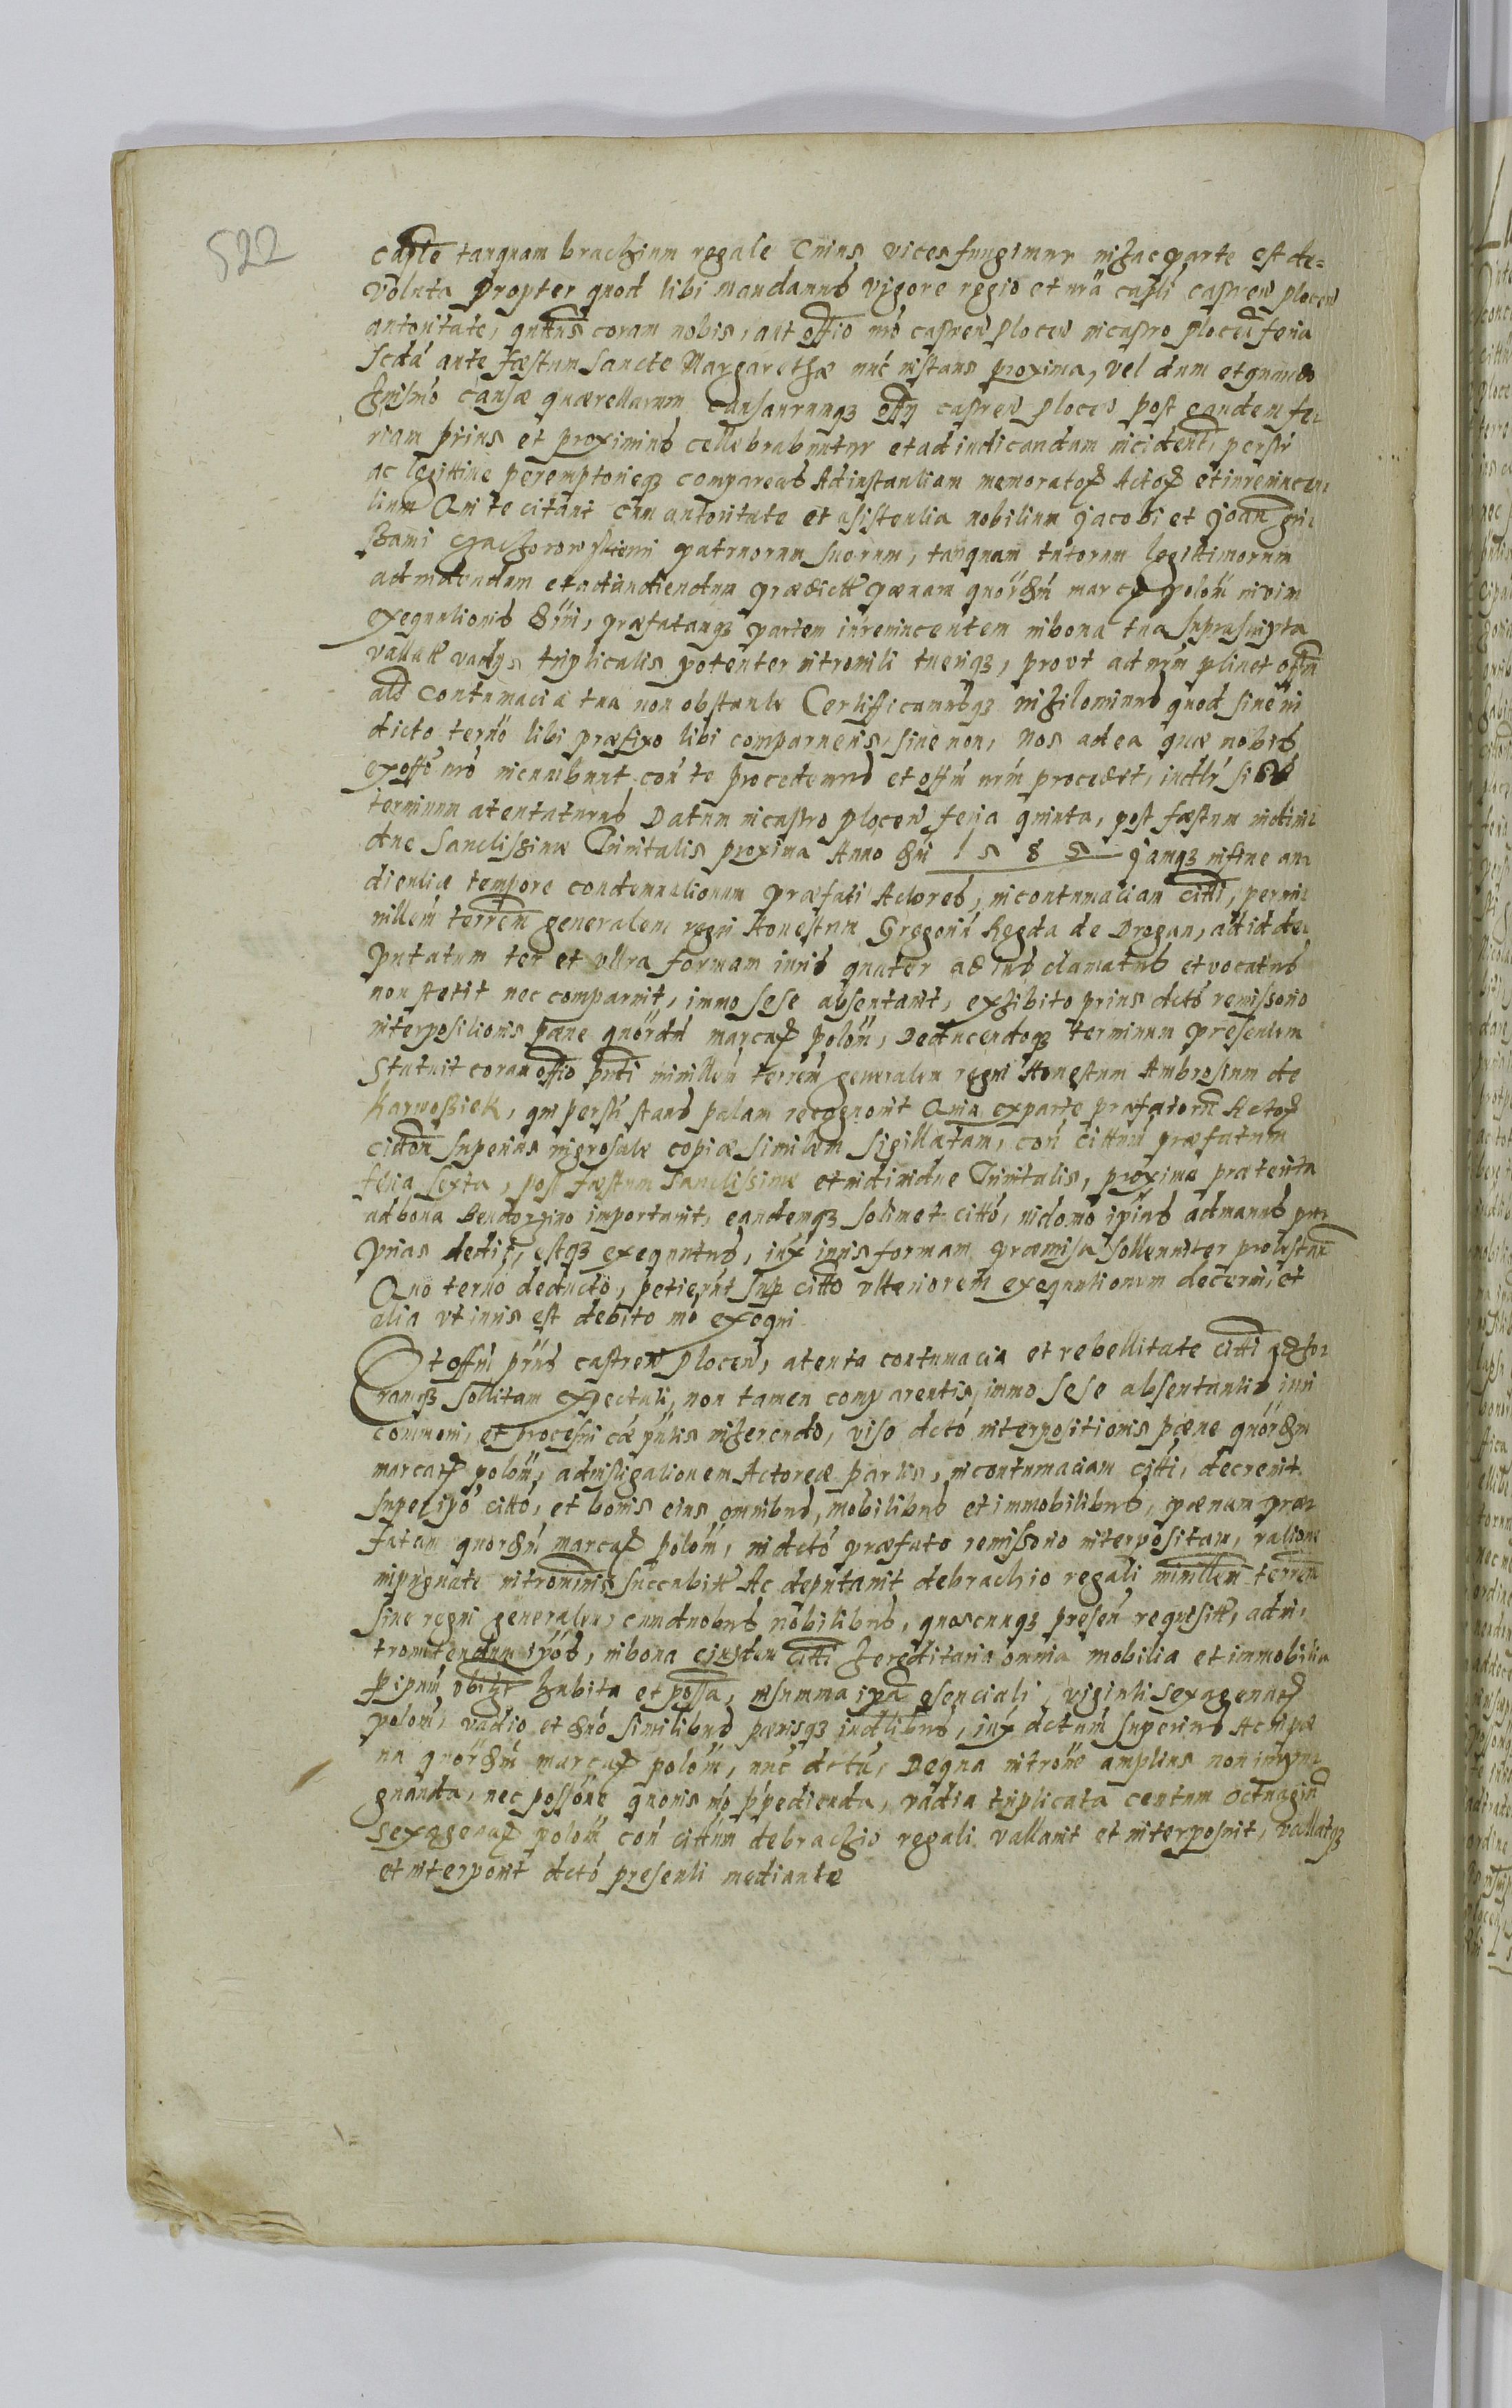 522
castre tanquam brachium regale Cuius vices fungimur in hac parte est de=
voluta Propter quod tibi Mandamus vigore regio et nrã capli castren Plocen
autoritate, quatns coram nobis, aut offio nro castren Plocen in castro Plocen feria
scda ante fæstum Sancte Margarethæ nuc instans proxima, vel dum et quando
huismo causæ quærellarum causarumqz offy castren Plocen post eandem fe-
riam prius et proximius cellebrabuntur et ad iudicandum incident, perslr
ac legittime peremptorieqz compareas Ad instantiam memoratoꝝ Actoꝝ et inremincen-
tium Qui te citant cum autoritate et assistentia nobilium Jacobi et Joan
patruorum suorum, tanquam tutorum legittimorum
ad videndum et ad audiendum prædictt pœnam quordm marcaꝝ polon in vim
exequutionis dni, præfatamqz partem inremincentem in bona tua suprascripta
vallatt vadys triplicatis potenter intromitti tueriqz, prout ad nrm ptinet offm
ald contumacia tua non obstante Certifficamusqz nihilominus quod sive in
dicto termo tibi præfixo tibi comparueris, sive non, nos ad ea quæ nobis
ex offo nro incumbunt con te procedemus et offm nrm procedet, iudtr si
terminum atentaturus Datum in castro Plocen feria quinta, post fæstum indivi-
due Sanctissimæ Trinitatis proxima Anno dni 1585 Jamqz in fine au-
dientiæ tempore condemnationum Præfati Actores, in contumaciam citti, per mi-
nillem terren generalem regni Honestum Gregoriu Regda de Drogan, ad id de-
putatum ter et ultra formam iuris quater ad ius clamatus et vocatus
non stetit nec comparuit, immo sese absentavit, exhibito prius dcto remissorio
interpositionis pæne quordm marcaꝝ polon, Deducendoqz terminum presentem
Statuit coram offio pnti minillem terrem generalem regni Honestum Ambrosium de
Karwosiek, qui perslr stans palam recognovit Quia ex parte præfatorum Actoꝝ
citton superius ingrosate copiæ similem sigillatam, con cittum præfatum
feria sexta, post fæstum Sanctissimæ et individue Trinitatis, proxima præterita
ad bona Bendorzino importavit, eandemqz solimet citto, in domo ipius ad manus pro-
prias dedit, estqz exequutus, iux iuris formam præmissa sollenniter protestan
Quo termo deducto, petierut sup citto ulteriorem exequutionem decerni, et
alia ut iuris est debito mo exequi
Et offm pnts castren Plocen, atenta contumacia et rebellitate citti
ramqz sollitam expectati, non tamen comparentis, immo sese absentantis iuri
communi, et processui cæ pntis inherendo, viso dcto interpositionis pæne quordm
marcaꝝ polon, ad instigationem Actoreæ partis, in contumaciam citti, decrevit
super ipo citto, et bonis eius omnibus, mobilibus et immobilibus, pœnam præ-
fatam quordm marcaꝝ polon, in dcto præfato remissorio interpositam, ratione
inpugnate intromnis succubitt Ac deputavit de brachio regali minillem terren
sive regni generalem, cum duobus nobilibus, quoscunqz presen requisitt, ad in-
tromitendum ipos, in bona eiusdem citti hereditaria omnia mobilia et immobilia
ꝑ ipum obitzt habita et possa, in summa ipa essenciali, viginti sexagenaꝝ
polon, vadio et dno similibus pænisqz iudlibus, iux dctum superius Ac in pœ
na quordm marcaꝝ polon, nuc dcta, De qua introne amplius non impu-
gnanda, nec possone quovis mo ppedienda, vadia triplicata centum octuagint
sexagenaꝝ polon con cittum de brachio regali vallavit et interposuit, vallatqz
et interponit dcto presenti mediante